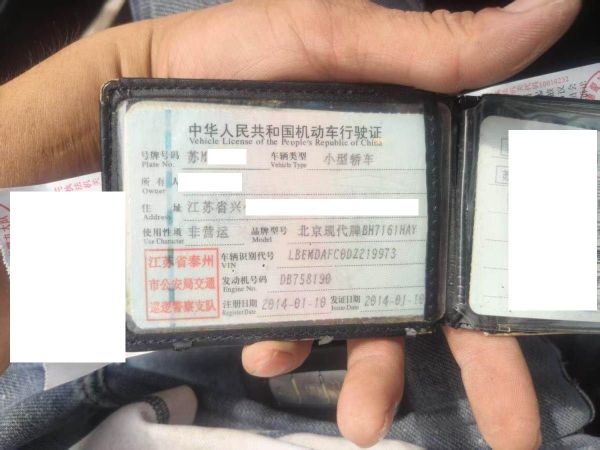 中华人民共和国机动车行驶证
Vehicle License of the People's Republic of China
号牌号码 苏 车辆类型 小型轿车
Plate No. Vehicle Type
所有人
Owner
住 址 江苏省兴
Address
使用性质 非营运 品牌型号 北京现代牌BH7161HAY
Use Character Model
江苏省泰州
市公安局交通
巡逻警察支队
车辆识别代号 LBEMDAFC0DZ219973
VIN
发动机号码 DB758190
Engine No.
注册日期 2014-01-10 发证日期 2014-01-10
Register Date Issue Date